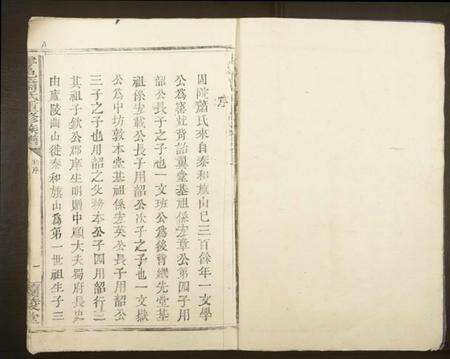 序
固院蕭氏來自泰和旗山已三百餘年一文學
公為寨並背詒翼堂基祖係宏章公第四子用
韶公長子之子也一文班公為後背繼先堂基
祖係宏載公長子用韶公次子之子也一文嶽
公為中坊敦本堂基祖係宏英公長子用韶公
三子之子也用韶之父務本公子四用韶行三
其祖子欽公郡庠生明贈中順大夫蜀府長史
由廬陵幽山徙泰和旗山為第一世祖生子三
序
一
堂